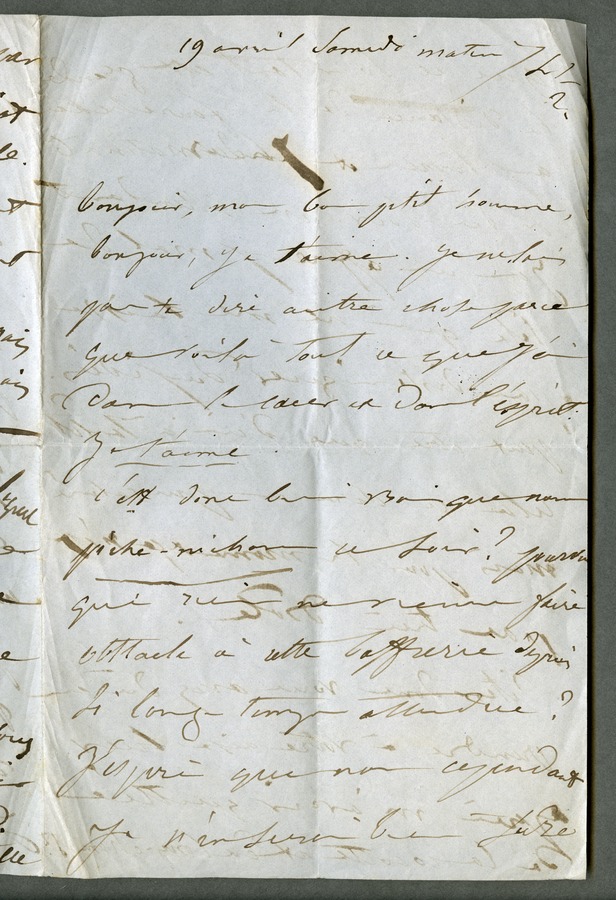 19 avril Samedi matin 7 h 1/2
bonjour, mon bon ptit homme,
bonjour, je t'aime. je ne sais
que te dire autre chose parce
que voilà tout ce que j'ai
dans le coeur et dans l'esprit.
Je t'aime.
c'est donc bien vrai que nous
piche-nichons ce soir? pourvu
que rien ne vienne faire
obstacle à cette bafferie depuis
si longtemps attendue?
J'espère que non cependant
Je n'en serai bien sûre